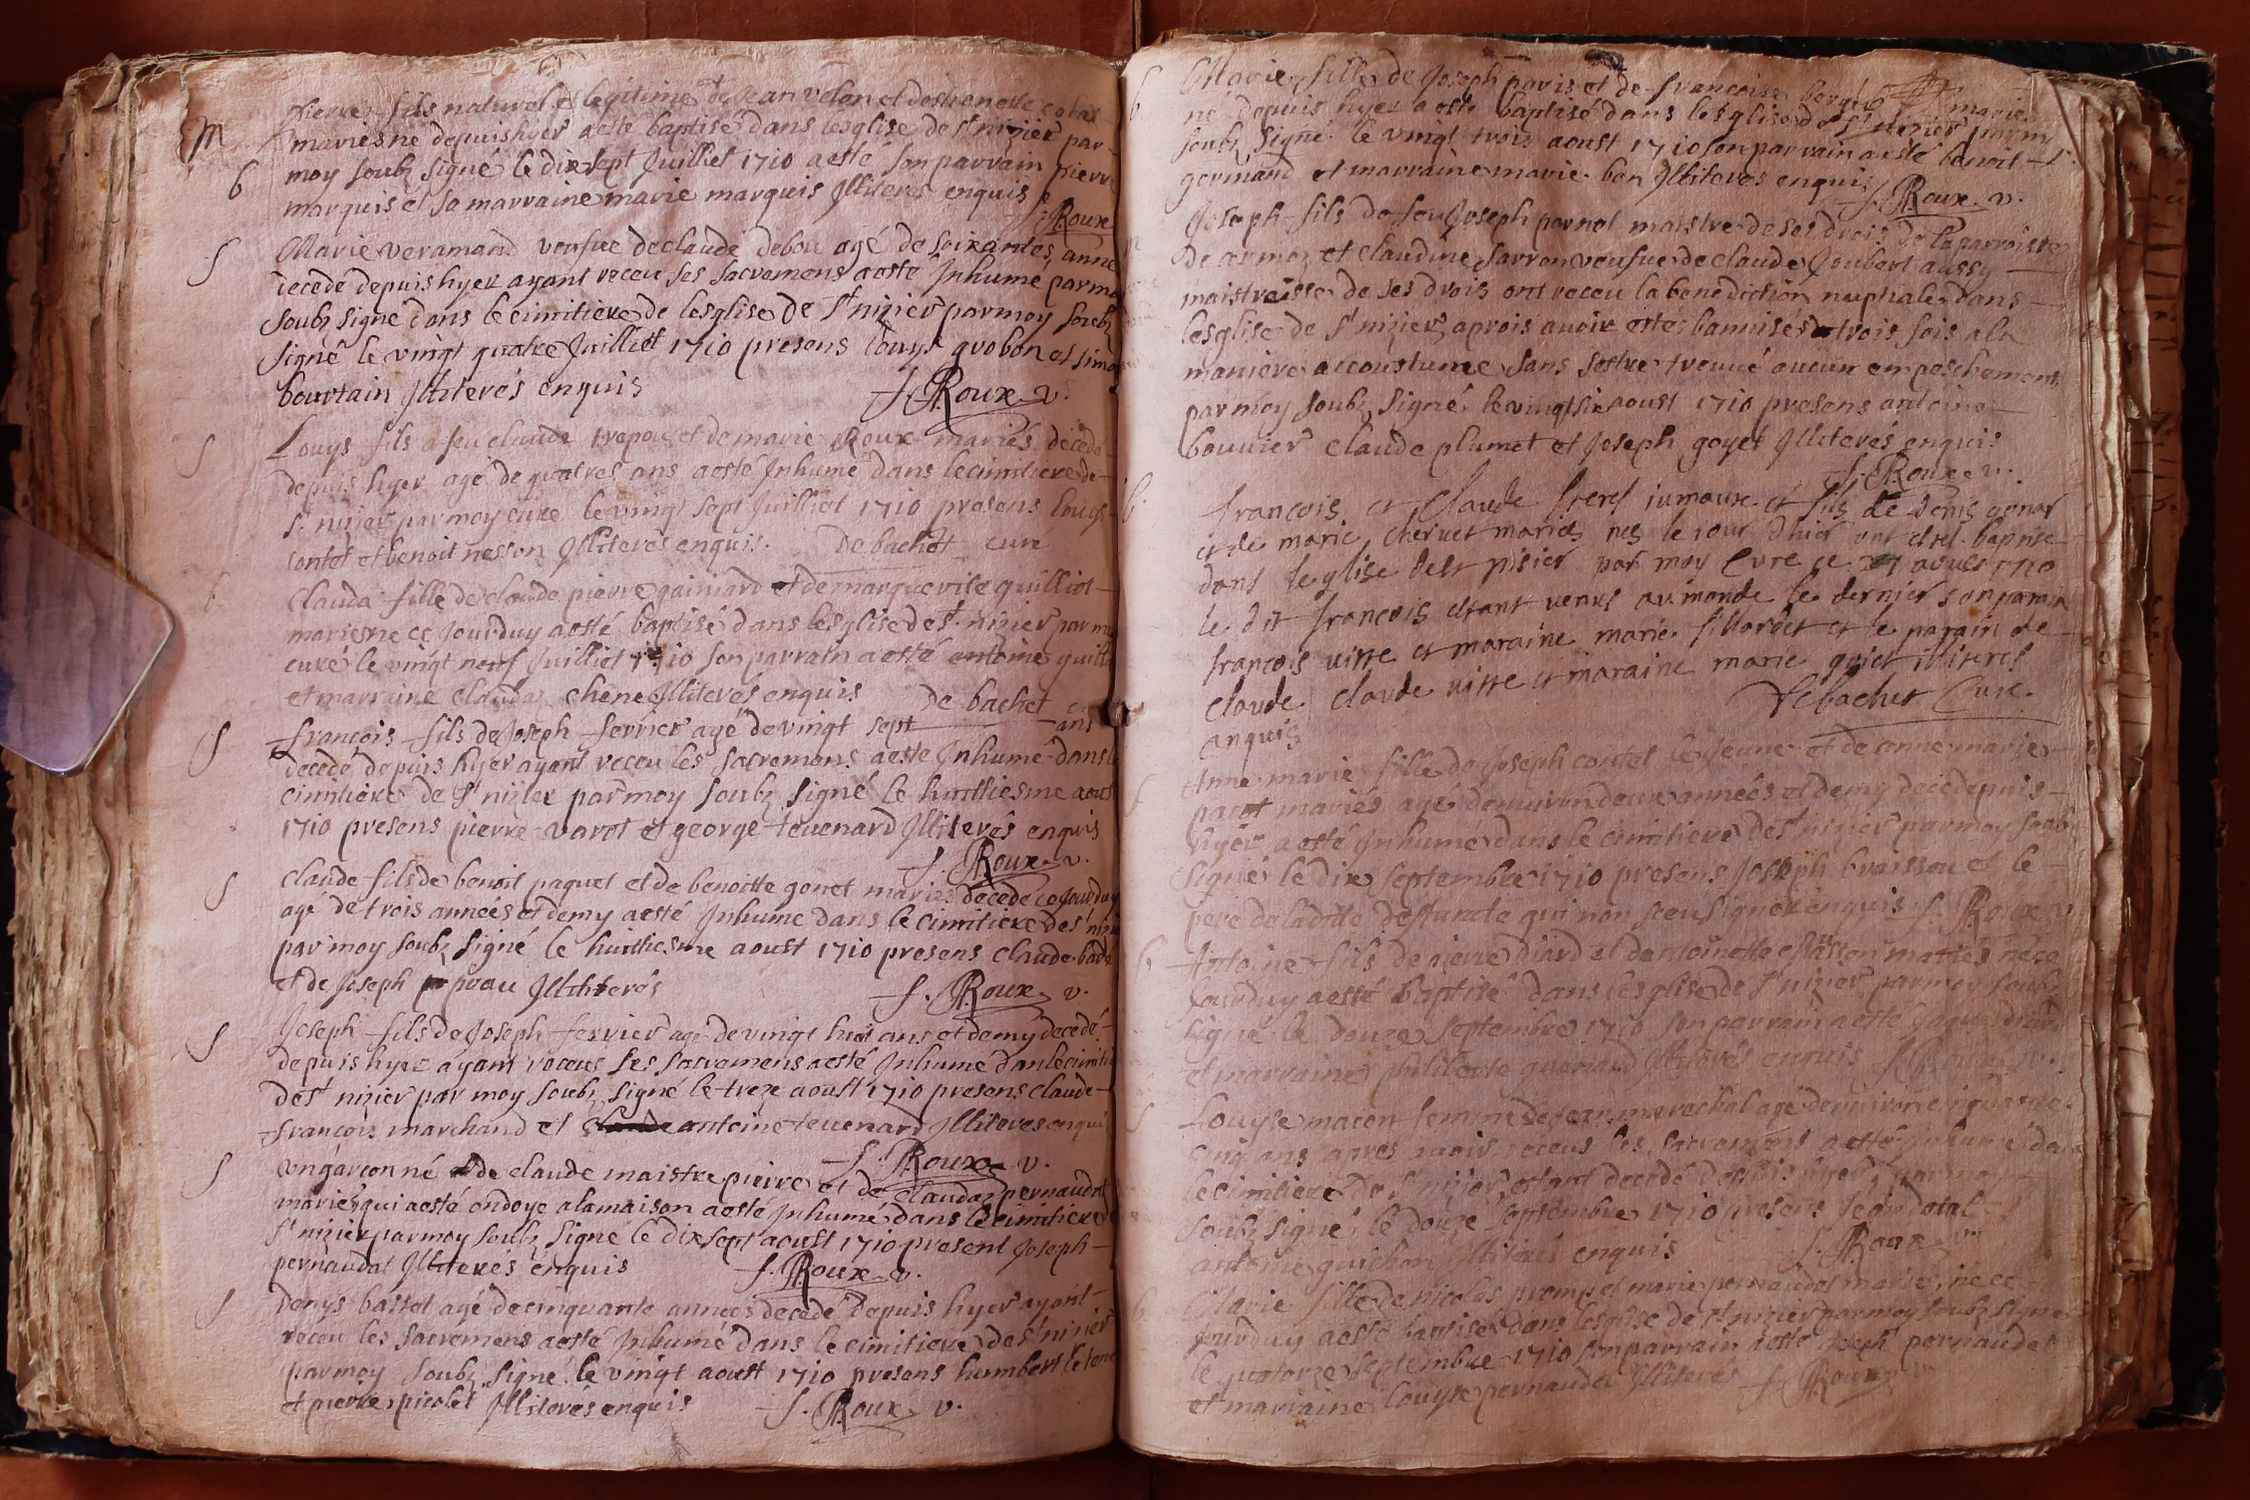 pierre fils naturel et legitime de jean velon et destiennette
m mariesne depuis hyer aeste baptisé dans lesglise de st nizier par
moy soubz signé le dix sept Juillet 1710 aesté son parrain pierre
b marquis et sa marraine marie marquis Illiteres enquis
f. Roux
S Marie veramand veufue declaude debou agé de soixantes anne
decedé depuis hyer ayant receu ses sacremens aesté Inhumé parmoy
soubz signé dans le cimitiere de lesglise de st nizier parmoy soubz
signé le vingt quatre Juilliet 1710 presens louys grobon et simon
bourtain Illiterés enquis f. Roux v.
S Louys fils a feu claude trepoz et de marie Roux mariés decedé
depuis hyer agé de quatres ans aesté Inhumé dans lecimitiere de
st. nizier parmoy curé le vingt sept Juilliet 1710 presens louys
contet et benoit nesson Illiteres enquis. De bachet curé
b Clauda fille de claude pierre gainiard et demarguerite quilliot
mariesne ce Jourduy aesté baptisé dans lesglise de st. nizier par moy
curé le vingt neuf Juilliet 1710 son parrain aesté antoine quilli
et marraine clauda chene Illiterés enquis De bachet c
S francois fils de Joseph ferrier agé de vingt sept ans
decedé depuis hyer ayant receu les sacremens aesté Inhumé dans le
cimitiere de st nizier par moy soubz signé le huitliesme aoust
1710 presens pierre varot et george teuenard Illiterés enquis
f. Roux v.
S claude fils de benoit paquet et de benoitte gonet mariés decedé ce Jourduy
agé de trois années et demy aesté Inhume dans le cimitiere de st nizier
par moy soubz signé le huitliesme aoust 1710 presens claude
et de Joseph pveau Illiterés f. Roux v.
S Joseph fils de Joseph ferrier agé de vingt huit ans et demy decedé
depuis hyer ayant receus ses sacremens aesté Inhumé dans lecimiti
de st nizier par moy soubz signé le treze aoust 1710 presens claude
francois marchand et claude antoine teuenard Illiteres enqui
f. Roux v.
S un garcon né de claude maistre pierre et de clauda pernaudat
mariés qui aesté ondoyé alamaison aesté Inhumé dans le cimitiere de
st nizier parmoy soubz signé le dix sept aoust 1710 present Joseph
pernaudat Illiterés enquis f. Roux v.
S denys bassel agé de cinquante années decedé depuis hyer ayant
receu les sacremens aesté Inhumé dans le cimitiere de st nizier
par moy soubz signé le vingt aoust 1710 presens humbert
et pierre picolet Illiterés enquis f. Roux v.
b Marie fille de Joseph paris et de francoise marie
né depuis hyer a esté baptisé dans lesglise de st nizier par moy
soubz signé le vingt trois aoust 1710 son parrain aesté benoit
germand et marraine marie bon Illiterés enquis
f. Roux v.
Joseph fils de feu Joseph pernot maistre de ses drois de la parroisse
de armoz et claudine sarron veufue de claude Joubert aussy
maistresse de ses drois ont receu la benediction nuptiale dans
lesglise de st nizier aprois auoir estez bannisés trois fois a la
maniere accoustume sans sestre treuué aucun empeschement
par moy soubz signé le vingt six aoust 1710 presens antoine
bouuier claude plumet et Joseph goyet Illiterés enquis
f. Roux v.
b. francois et Claude freres iumaux et fils de Denis gonar
et de marie chervet mariés nes le iour dhier ont estes baptisé
dans leglise de st nisier par moy Cure ce 27 aoust 1710
le dit francois estant venus au monde le dernier son parain
francois vitte et maraine marie et le parain de
claude claude vitte et maraine marie guiet illiteres
enquis Debachet Cure.
S Anne marie fille de Joseph contet le Jeune et de anne marie
pacot mariés agé denuiron deux années et demy decedé depuis
hyer aesté Inhumé dans le cimitiere de st nizier parmoy soubz
signé le dix septembre 1710 presens Joseph braissou et le
pere de ladtte deffuncte qui non sceu signer enquis f. Roux v
b Antoine fils de pierre diard et dantoinette mariés né ce
Jourduy aesté baptisé dans lesglise de st nizier parmoy soubz
signé le douze septembre 1710 son parrain aesté diard
et marraine philiberte guenard Illiterés enquis f. Roux v.
S Louyse macon femme de Jean marechal agé denuiron cinquante
cinq ans apres avoir receus les sacremens aesté Inhumé dans
le cimitiere de st nizier estant decedé depuis hyer parmoy
soubz signé le douze septembre 1710 presens Jean dotal
antoine guichon Illiterés enquis f. Roux
b Marie fille de nicolas promp et marie pernaudet mariés né ce
Jourduy aesté baptisé dans lesglise de st nizier parmoy soubz signé
le quatorze septembre 1710 son parrain aesté Joseph pernaudet
et marraine louyse pernaudet Illiterés f. Roux